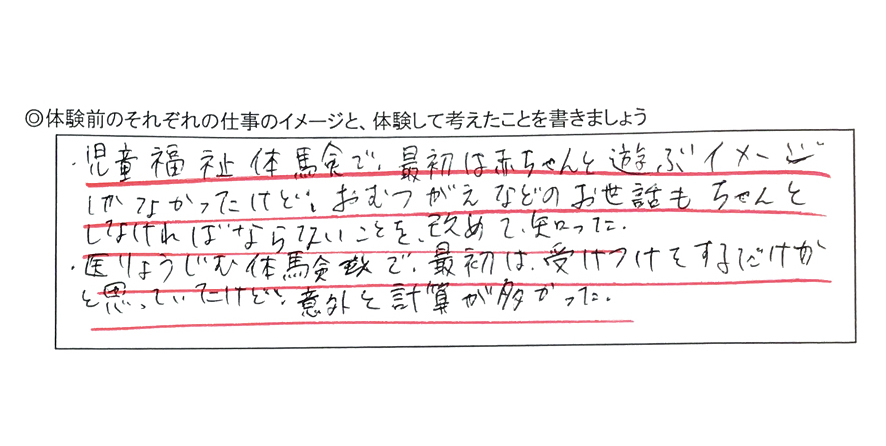 ◎体験前のそれぞれの仕事のイメージと、体験して考えたことを書きましょう
・児童福祉体験で、最初は赤ちゃんと遊ぶイメージ
しかなかったけど、おむつがえなどのお世話もちゃんと
しなければならないことを、改めて知った。
・医りょうじむ体験で、最初は、受けつけをするだけか
と思っていたけど、意外と計算が多かった。